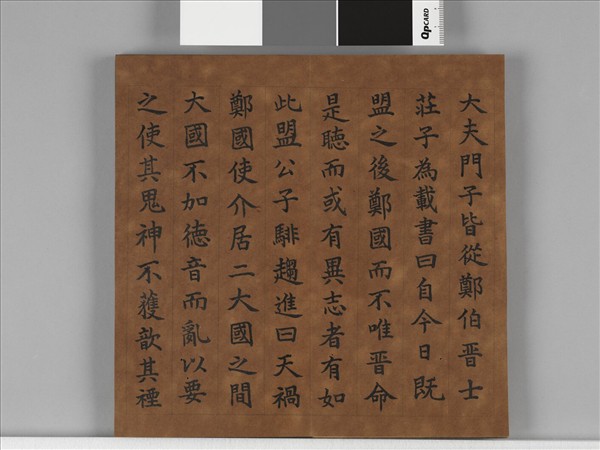 大夫門子皆從鄭伯晋士
莊子為載書曰自今日既
盟之後鄭國而不唯晋命
是聽而或有異志者有如
此盟公子騑趨進曰天禍
鄭國使介居二大國之間
大國不加徳音而亂以要
之使其鬼神不獲歆其禋
QPCARD